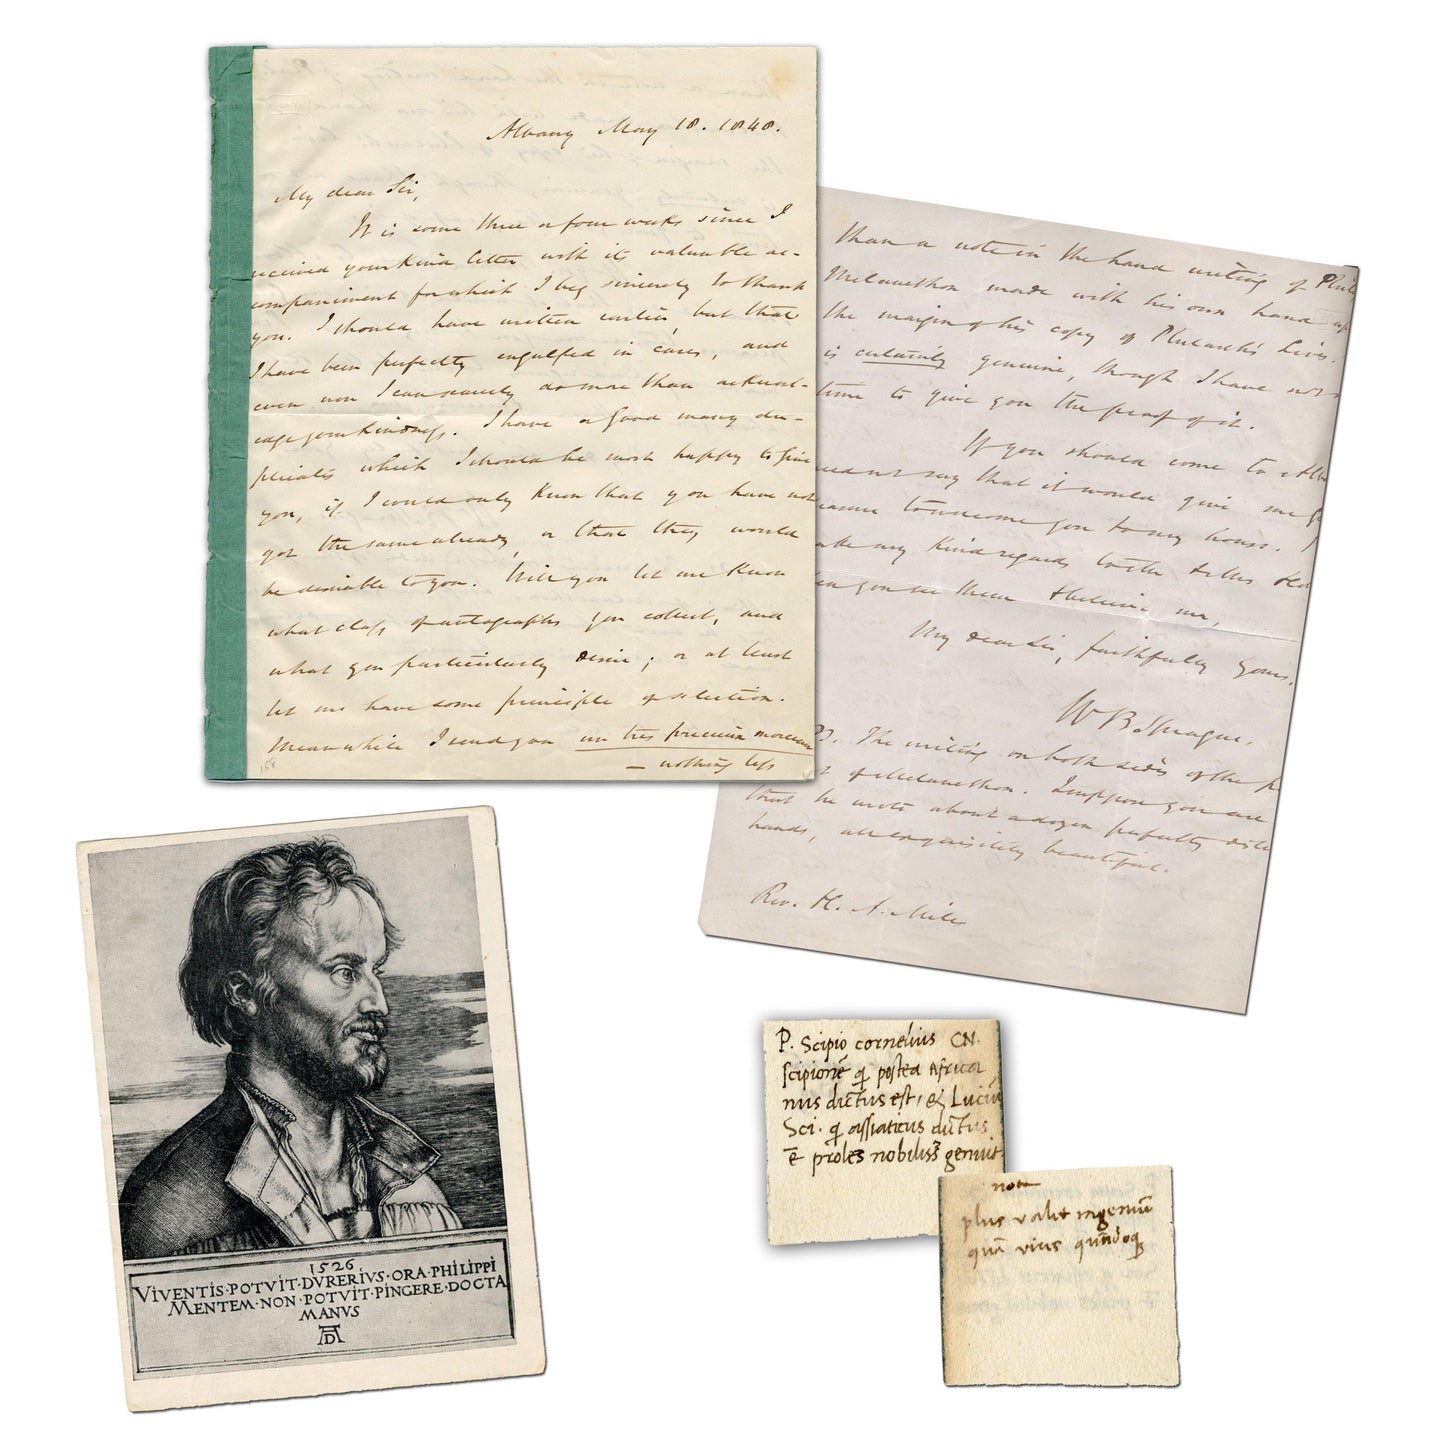 Albany May 18. 1848.
My dear Sir,
It is some three or four weeks since I
received your kind letter with its valuable ac-
companiment for which I beg sincerely to thank
you. I should have written earlier, but that
I have been perfectly engulfed in cares, and
even now I can scarcely do more than acknowl-
edge your kindness. I have a good many du-
plicates which I should be most happy to give
you, if I could only know that you have not
got the same already, or that they would
be desirable to you. Will you let me know
what class of autographs you collect, and
what you particularly desire; or at least
let me have some principle of selection.
Meanwhile I send you un tres precieux morceau
— nothing less
158
than a note in the hand writing of Philip
Melancthon made with his own hand up
the margin of his copy of Plutarch's Lives.
is certainly genuine, though I have not
time to give you the proof of it.
If you should come to Alba
need not say that it would give me
to welcome you to my house.
my kind regards to the
you see them & believe me,
My dear Sir, faithfully yours,
W B Sprague.
The writing on both sides of the
of Melancthon. I suppose you are
that he wrote about a dozen perfectly
hands, all exquisitely beautiful.
Rev. H. A. Miles
1526
VIVENTIS·POTVIT·DVRERIVS·ORA·PHILIPPI
MENTEM·NON·POTVIT·PINGERE·DOCTA
MANVS
AD
P. Scipio cornelius CN.
scipionē q̄ postea Africa
nus dictus est, & Luciū
Sci. q̄ assiaticus dictus
ē proles nobiliss genuit
nota
plus valit ingeniū
quā vius quādoq